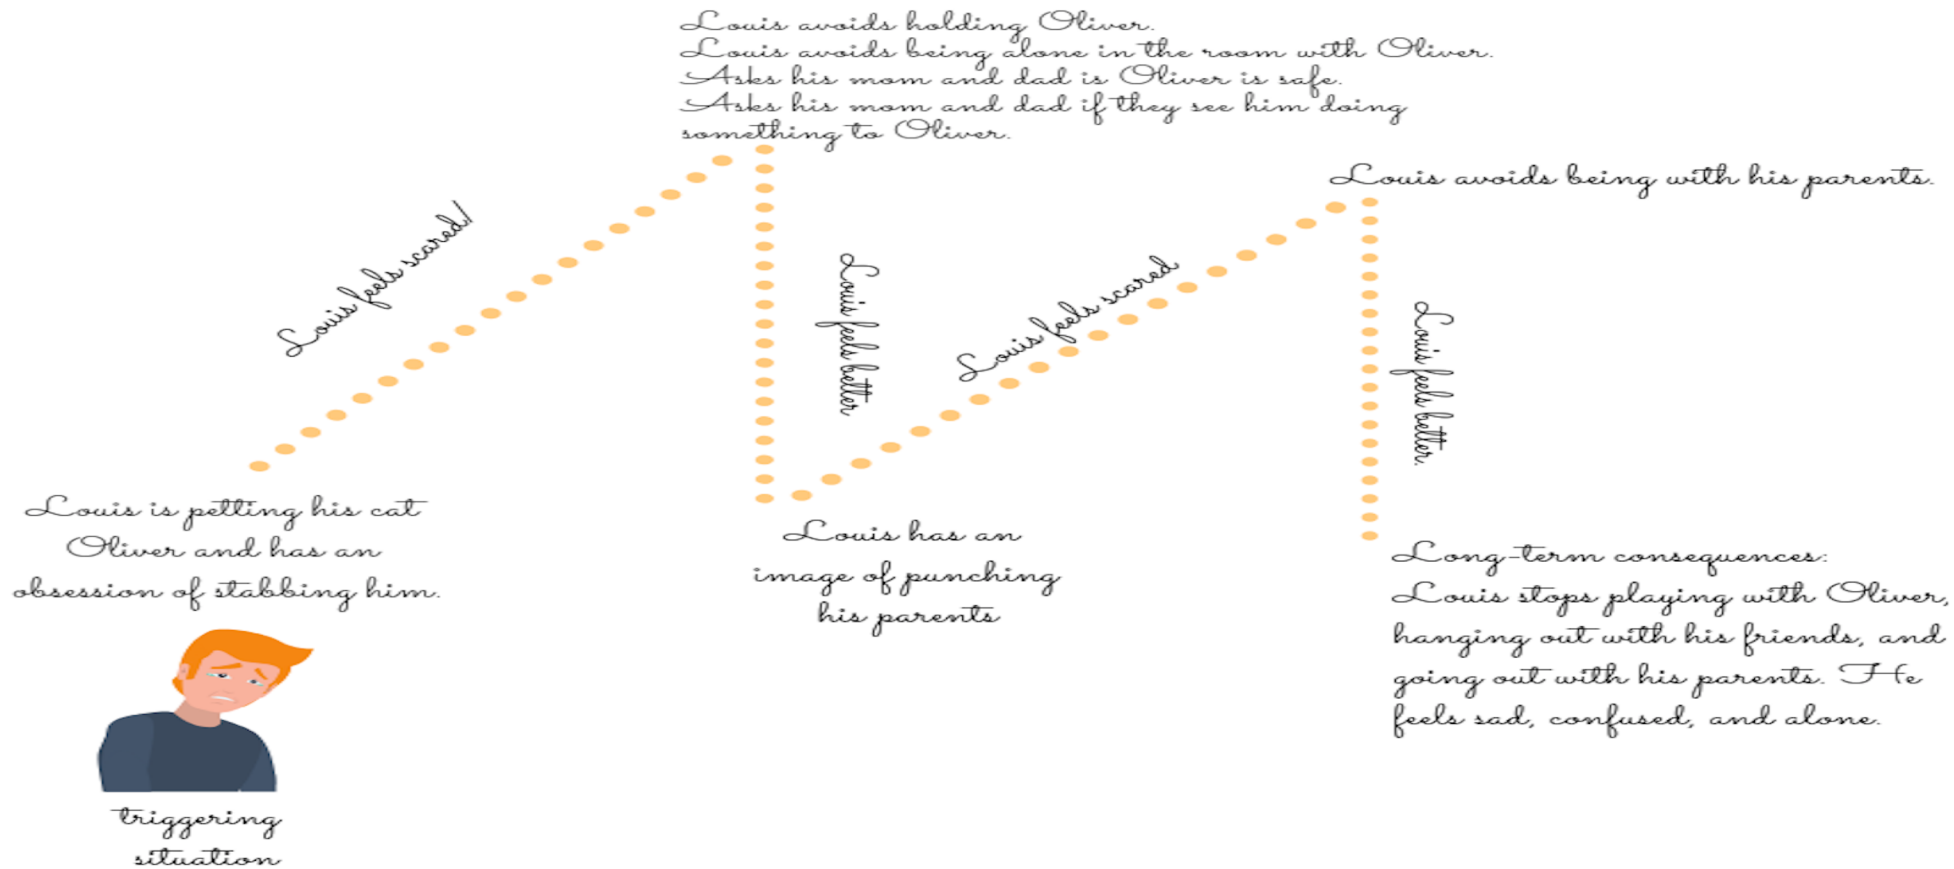 Louis avoids holding Oliver.
Louis avoids being alone in the room with Oliver.
Asks his mom and dad is Oliver is safe.
Asks his mom and dad if they see him doing
something to Oliver.
Louis feels scared/
Louis feels better
Louis feels scared
Louis avoids being with his parents.
Louis feels better.
Louis is petting his cat
Oliver and has an
obsession of stabbing him.
triggering
situation
Louis has an
image of punching
his parents
Long-term consequences:
Louis stops playing with Oliver,
hanging out with his friends, and
going out with his parents. He
feels sad, confused, and alone.